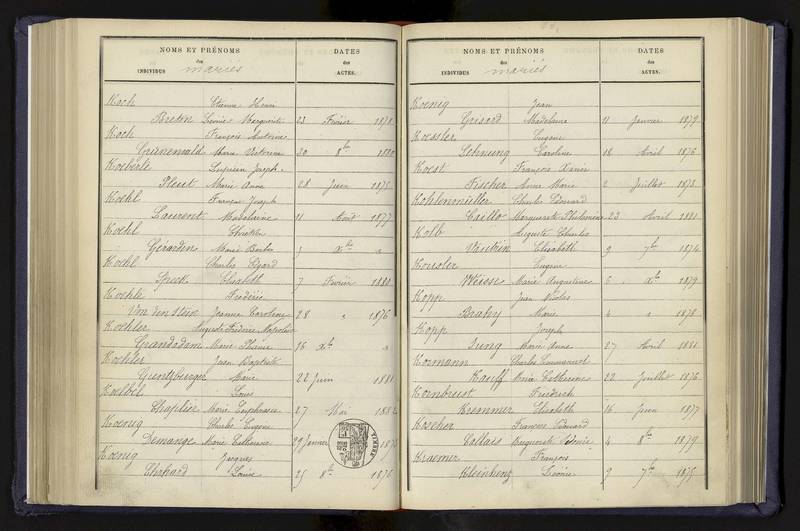 NOMS ET PRÉNOMS
des
INDIVIDUS mariés
DATES
des
ACTES.
Koch Etienne Henri
Breton Léonie Marguerite 23 Février 1878
Koch François Antoine
Grunenwald Marie Victorine 30 8bre 1880
Koeberlé Lucien Joseph
Pleut Marie Anne 28 Juin 1875
Koehl François Joseph
Laurent Madeleine 11 Août 1877
Koehl Christophe
Gérardin Marie Barbe Xbre "
Koehl Charles Gérard
Speck Elisabeth 7 Février 1880
Koehlé Frédéric
Von den Stein Jeanne Caroline 28 " 1876
Koehler Auguste Frédéric Napoléon
Grandadam Marie Xbre "
Koehler Jean Baptiste
Guntzburger Marie 22 Juin 1881
Koelbel Louis
Chaplier Marie Euphrasie 27 Mai 1882
Koenig Charles Eugène
Demange Marie Catherine 29 Janvier
Koenig Jacques
Ehrhard Louise 25 8bre 1876
NOMS ET PRÉNOMS
des
INDIVIDUS mariés
DATES
des
ACTES.
Koenig Jean
Grisard Madelaine 11 Janvier 1879
Koessler Eugène
Schnung Caroline 18 Avril 1876
Koest François Xavier
Fischer Anne Marie 2 Juillet 1873
Kohlenmüller Charles Edouard
Caillot Marguerite 23 Avril 1881
Kolb Auguste Charles
Vautrin Elisabeth 9 7bre 1874
Konsler Eugène
Weisse Marie Augustine 6 Xbre 1879
Kopp Jean Nicolas
Brahy Marie 4 " 1878
Kopp Joseph
Jung Marie Anne 27 Avril 1881
Kormann Charles Emmanuel
Kauff Marie Catherine 22 Juillet 1876
Kornbrust Friedrich
Kremmer Elisabeth 16 Juin 1877
Koscher François Edouard
Collais Marguerite 4 8bre 1879
Kraemer François
Kleinhenz Léonie 9 7bre 1875